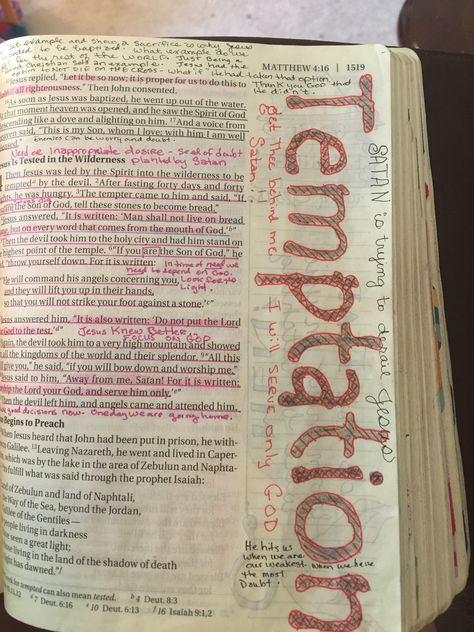 example and show a sacrifice to why Jesus
to be baptized. what example do we
for the rest of the WORLD. Just Being a
Christian sets an example. Jesus had the
option to NOT DIE on THE CROSS - What if He had taken that option
Thank you God that
He didn't.
MATTHEW 4:16 | 1519
Jesus replied, "Let it be so now; it is proper for us to do this to
all righteousness." Then John consented.
As soon as Jesus was baptized, he went up out of the water.
that moment heaven was opened, and he saw the Spirit of God
descending like a dove and alighting on him. 17And a voice from
heaven said, "This is my Son, whom I love; with him I am well
Enemies can be worry and doubt.
Inappropriate desire - Seed of doubt
planted by Satan
Jesus Is Tested in the Wilderness
Then Jesus was led by the Spirit into the wilderness to be
tempted by the devil. 2After fasting forty days and forty
nights, he was hungry. 3The tempter came to him and said, "If
are the Son of God, tell these stones to become bread."
Jesus answered, "It is written: 'Man shall not live on bread
alone, but on every word that comes from the mouth of God.'b"
Then the devil took him to the holy city and had him stand on
highest point of the temple. 6"If you are the Son of God," he
"throw yourself down. For it is written:
In time of need we
need to depend on God.
Look for the
Light.
"'He will command his angels concerning you,
and they will lift you up in their hands,
so that you will not strike your foot against a stone.'c"
Jesus answered him, "It is also written: 'Do not put the Lord
your God to the test.'d"
Jesus Knew Better.
FOCUS ON GOD
Again, the devil took him to a very high mountain and showed
all the kingdoms of the world and their splendor. 9"All this
I will give you," he said, "if you will bow down and worship me."
Jesus said to him, "Away from me, Satan! For it is written:
'Worship the Lord your God, and serve him only.'e"
Then the devil left him, and angels came and attended him.
good decisions now. One day we are going home.
Begins to Preach
When Jesus heard that John had been put in prison, he with-
Galilee. 13Leaving Nazareth, he went and lived in Caper-
which was by the lake in the area of Zebulun and Naphta-
fulfill what was said through the prophet Isaiah:
Land of Zebulun and land of Naphtali,
the Way of the Sea, beyond the Jordan,
Galilee of the Gentiles—
people living in darkness
have seen a great light;
those living in the land of the shadow of death
light has dawned."f
for tempted can also mean tested.
b 4 Deut. 8:3
d 7 Deut. 6:16
e 10 Deut. 6:13
f 16 Isaiah 9:1,2
Temptation
SATAN is trying to derail Jesus
Get Thee behind me Satan!! I will serve only GOD
He hits us
when we are
our weakest. when we have
the most
Doubt.